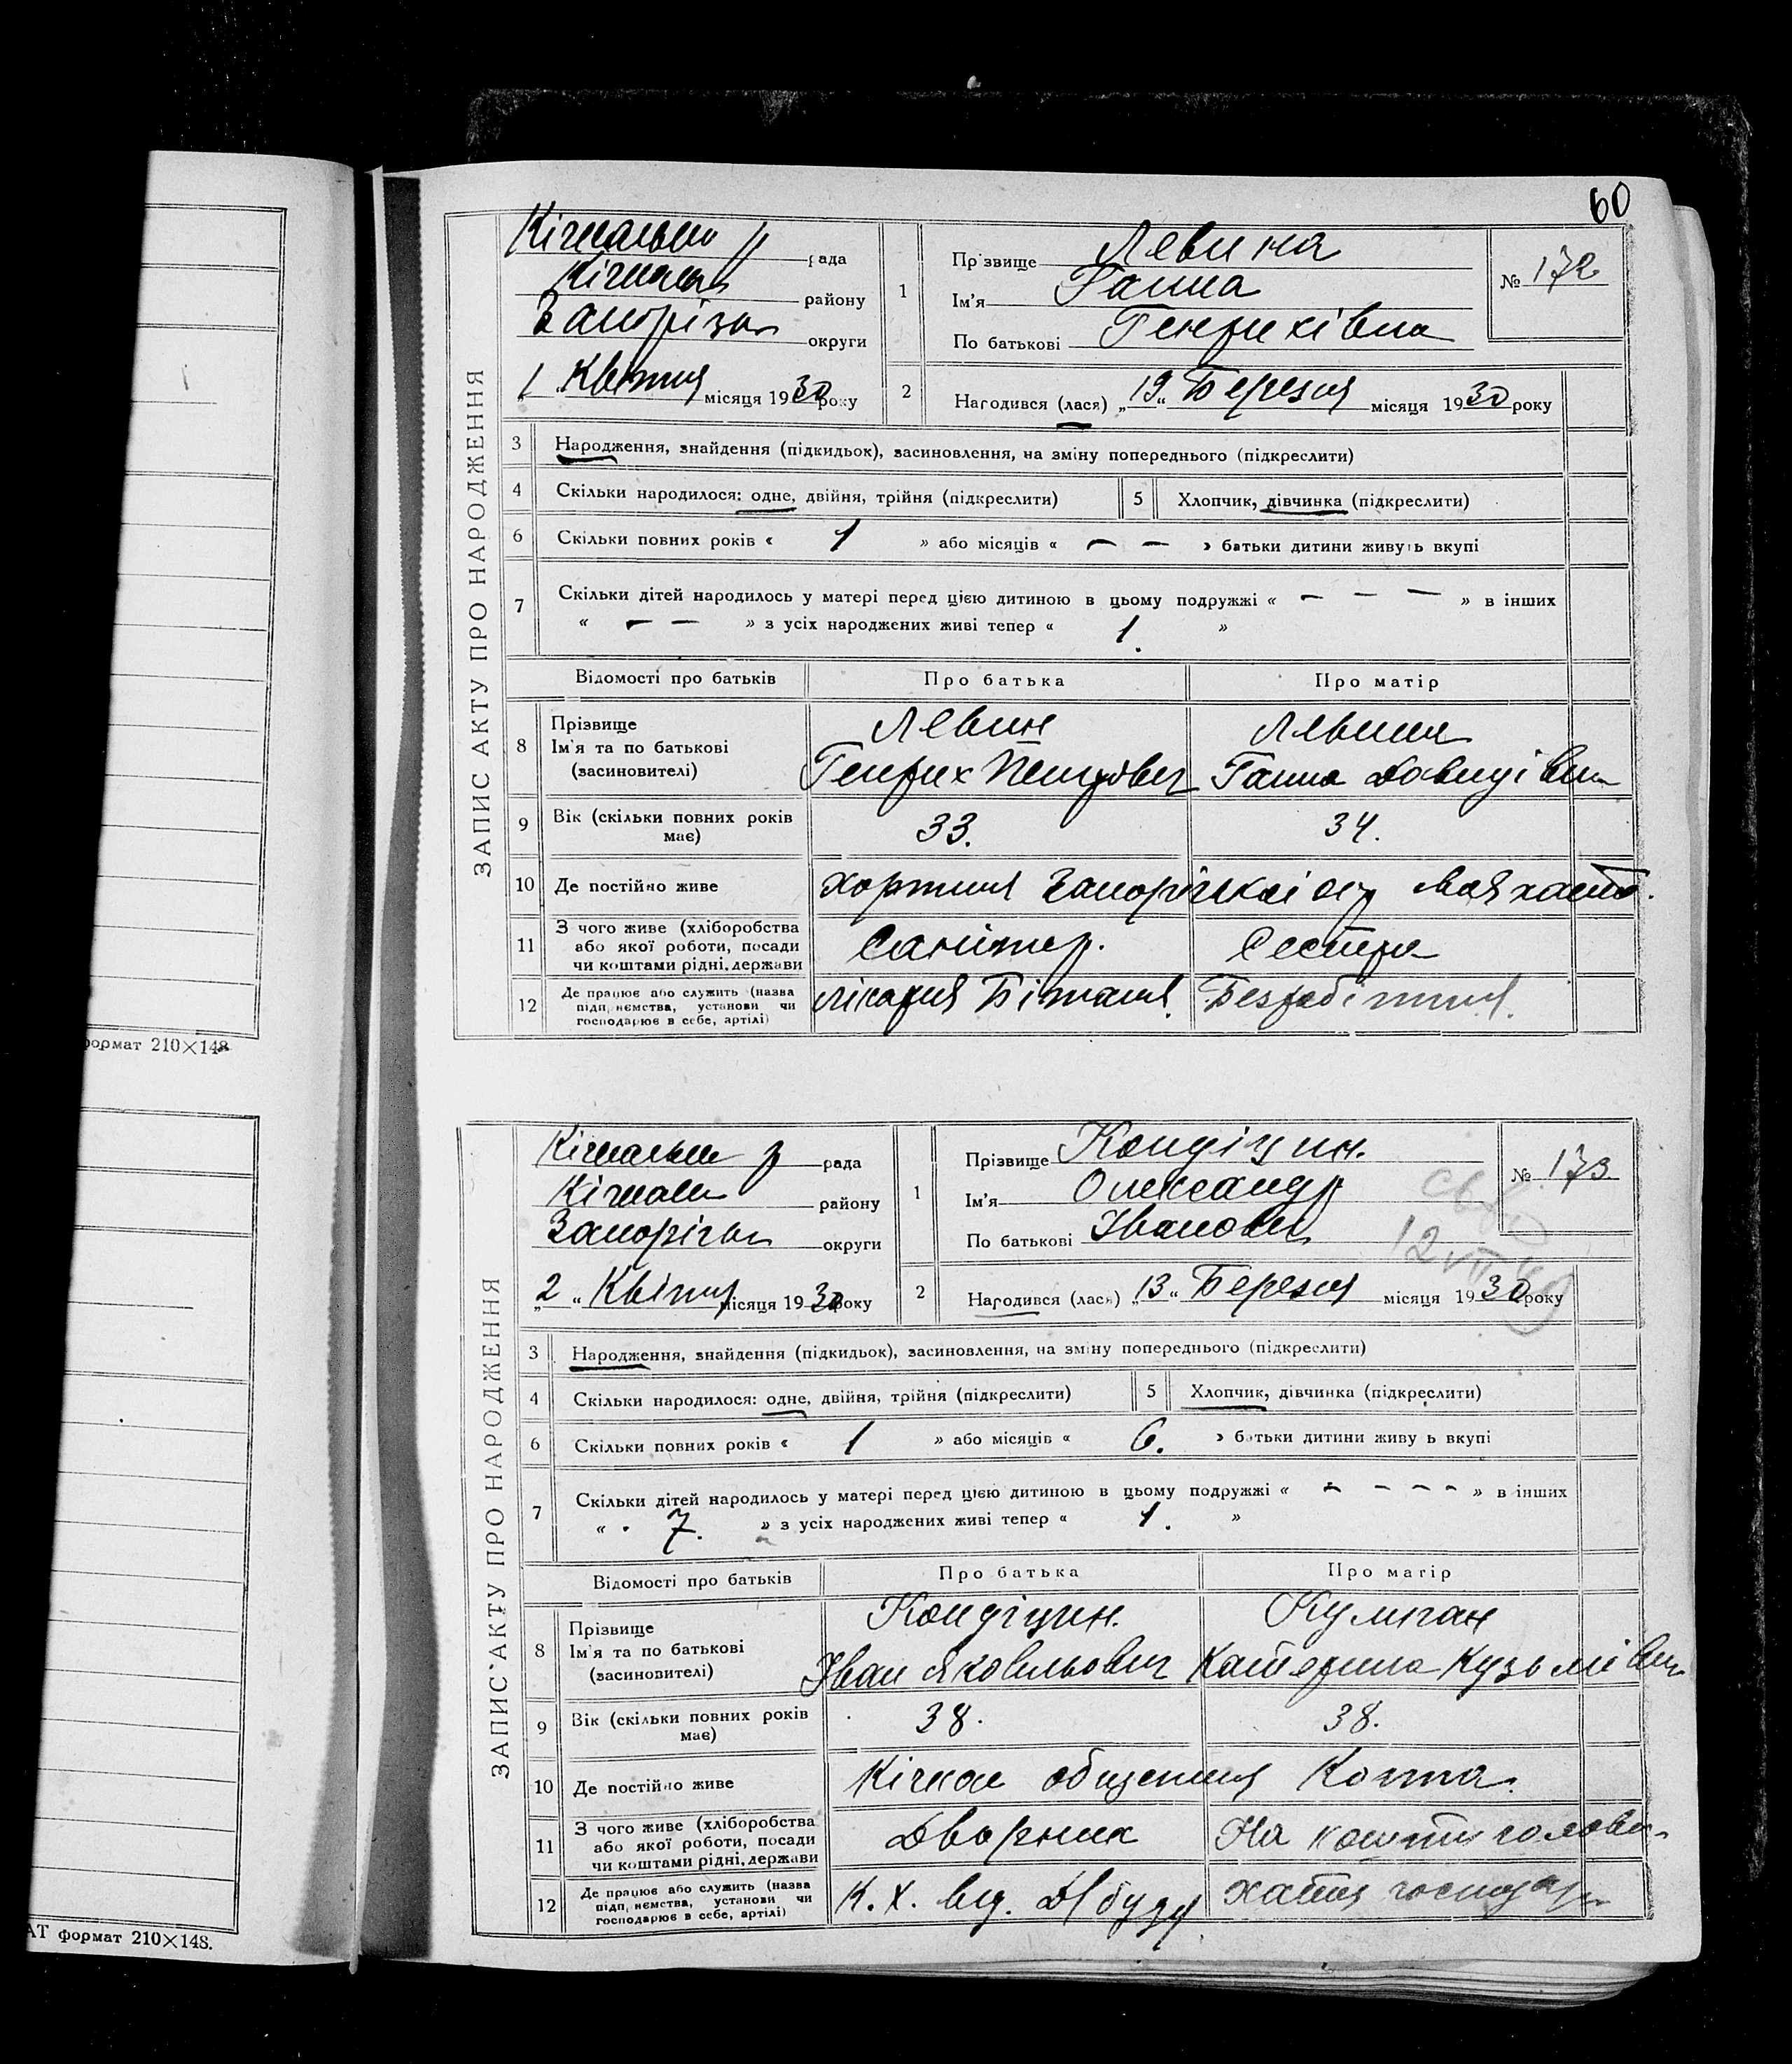 60
ЗАПИС АКТУ ПРО НАРОДЖЕННЯ
рада
району
Запорізьк округи
1 Квітня місяця 1930 року
1
Прізвище Левина
Ім'я Ганна
По батькові Генрихівна
№ 172
2
Народився (лася) „19“ Березня місяця 1930 року
3 Народження, знайдення (підкидьок), засиновлення, на зміну попереднього (підкреслити)
4 Скільки народилося: одне, двійня, трійня (підкреслити)
5 Хлопчик, дівчинка (підкреслити)
6 Скільки повних років « 1 » або місяців « — — » батьки дитини живуть вкупі
7 Скільки дітей народилось у матері перед цією дитиною в цьому подружжі « — — — » в інших
« — — » з усіх народжених живі тепер « 1. »
Відомості про батьків Про батька Про матір
8 Прізвище
Ім'я та по батькові
(засиновителі)
Левин
Генрих Петрович
Левина
Ганна Давидівна
9 Вік (скільки повних років
має)
33. 34.
10 Де постійно живе
Хортиця Запорізької окр
11 З чого живе (хліборобства
або якої роботи, посади
чи коштами рідні, держави
Санітар. Сестра
12 Де працює або служить (назва
підприємства, установи чи
господарює в себе, артілі)
лікарня Безробітня.
формат 210×148
ЗАПИС АКТУ ПРО НАРОДЖЕННЯ
рада
району
Запорізьк округи
„2“ Квітня місяця 1930 року
1
Прізвище Кондіцин.
Ім'я Олександр
По батькові Іванович
№ 173
2
Народився (лася) „13“ Березня місяця 1930 року
3 Народження, знайдення (підкидьок), засиновлення, на зміну попереднього (підкреслити)
4 Скільки народилося: одне, двійня, трійня (підкреслити)
5 Хлопчик, дівчинка (підкреслити)
6 Скільки повних років « 1 » або місяців « 6. » батьки дитини живу ь вкупі
7 Скільки дітей народилось у матері перед цією дитиною в цьому подружжі « - - - - » в інших
« 7. » з усіх народжених живі тепер « 1. »
Відомості про батьків Про батька Про матір
8 Прізвище
Ім'я та по батькові
(засиновителі)
Кондіцин.
Іван Яковльович
Катерина Кузьмівна
9 Вік (скільки повних років
має)
38. 38.
10 Де постійно живе
Кічкас
11 З чого живе (хліборобства
або якої роботи, посади
чи коштами рідні, держави
Дворник На кошти голови
12 Де працює або служить (назва
підприємства, установи чи
господарює в себе, артілі)
К. Х. від. хатня господар
АТ формат 210×148.